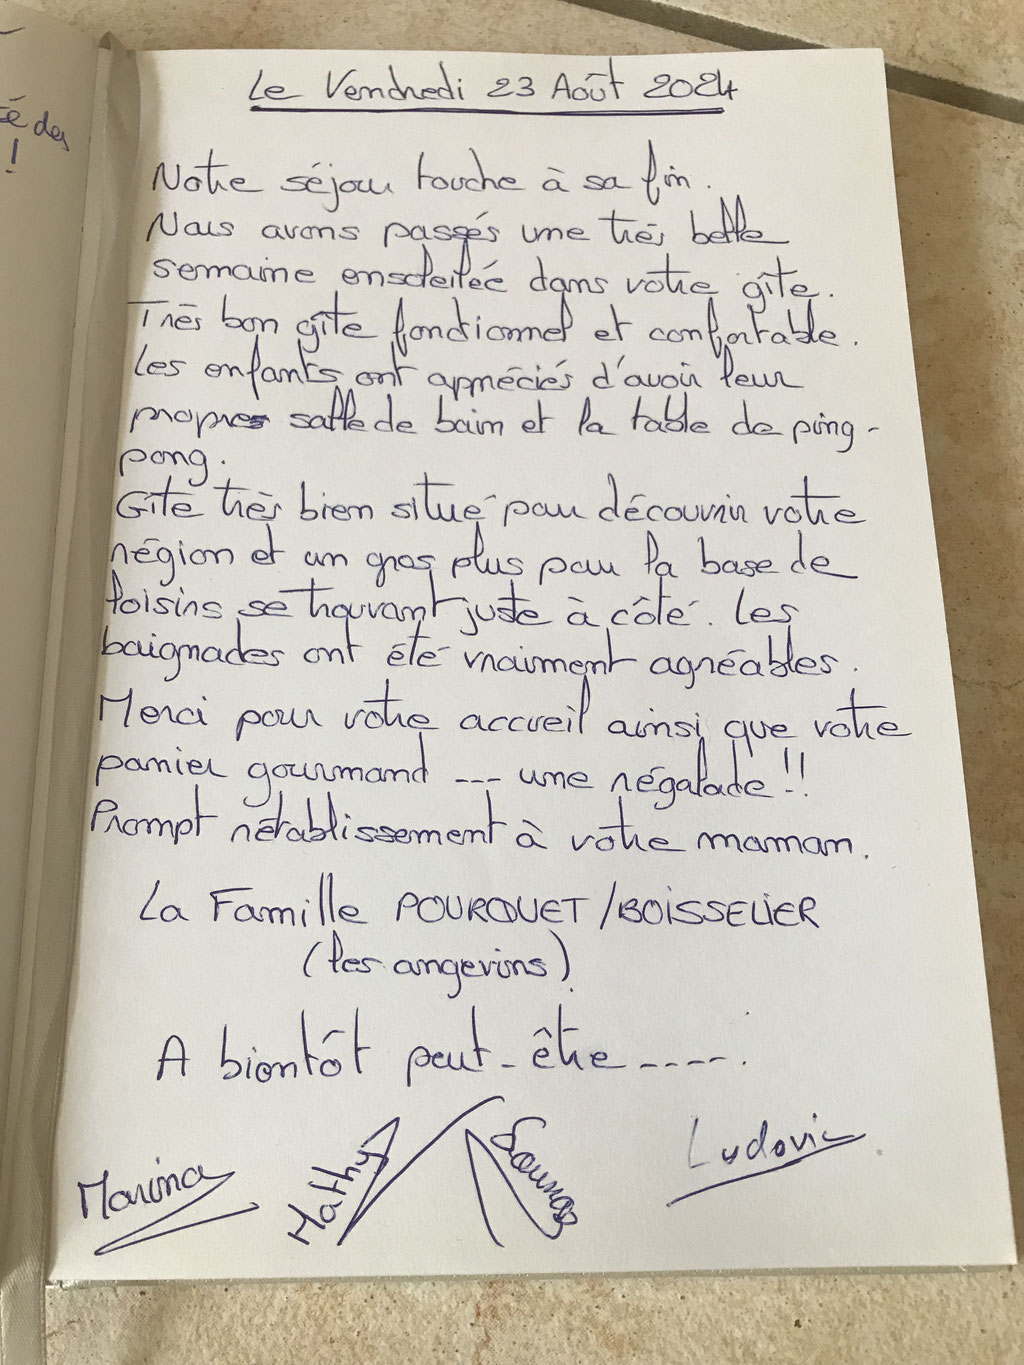 é des
!
Le Vendredi 23 Août 2024
Notre séjour touche à sa fin.
Nous avons passés une très belle
semaine ensoleillée dans votre gîte.
Très bon gîte fonctionnel et confortable.
Les enfants ont appréciés d'avoir leur
propres salle de bain et la table de ping-
pong.
Gîte très bien situé pour découvrir votre
région et un gros plus pour la base de
loisirs se trouvant juste à côté. Les
baignades ont été vraiment agréables.
Merci pour votre accueil ainsi que votre
panier gourmand --- une régalade !!
Prompt rétablissement à votre maman.
La Famille POURQUET / BOISSELIER
(les angevins)
A bientôt peut-être ----.
Marina
Mathy
Ludovic